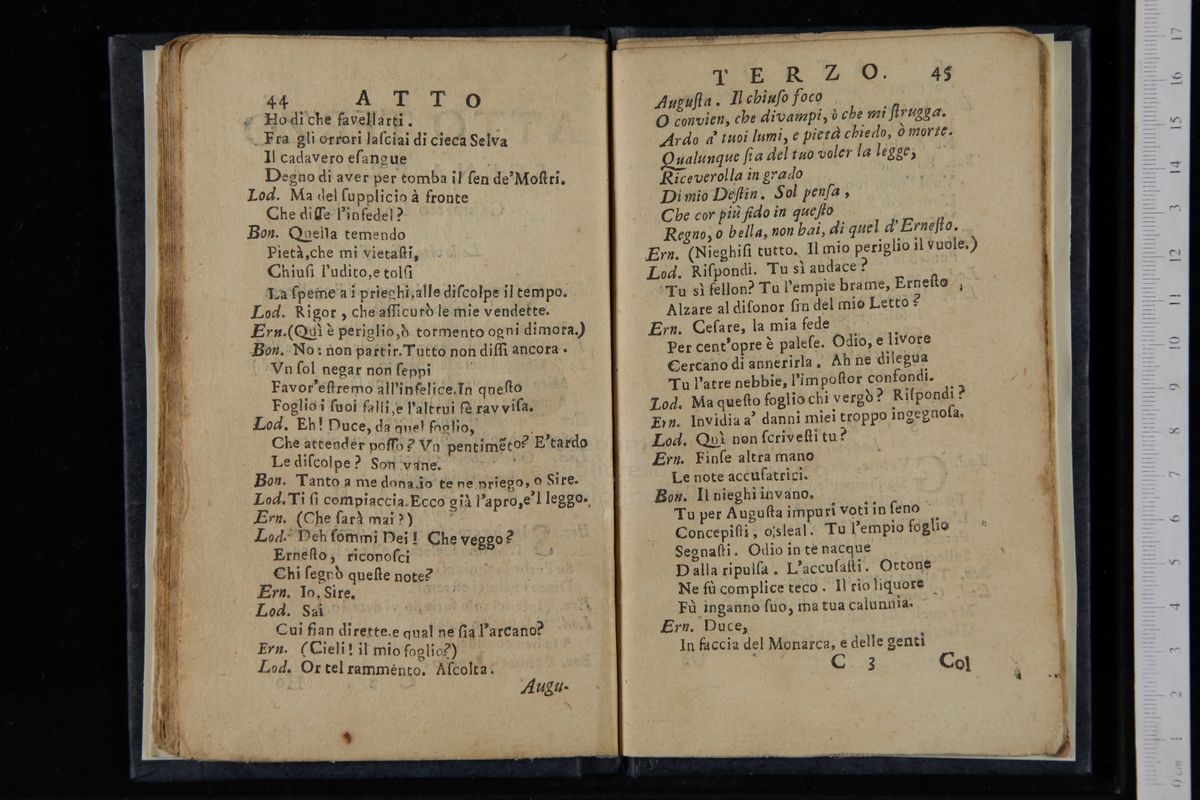 44 ATTO
Ho di che favellarti.
Fra gli orrori laſciai di cieca Selva
Il cadavero eſangue
Degno di aver per tomba il ſen de'Moſtri.
Lod. Ma del ſupplicio à fronte
Che diſſe l'infedel?
Bon. Quella temendo
Pietà,che mi vietaſti,
Chiuſi l'udito,e tolſi
La ſpeme a i prieghi,alle diſcolpe il tempo.
Lod. Rigor, che aſſicurò le mie vendette.
Ern.(Quì è periglio,ò tormento ogni dimora.)
Bon. No: non partir.Tutto non diſſi ancora.
Vn ſol negar non ſeppi
Favor'eſtremo all'infelice.In queſto
Foglio i ſuoi falli,e l'altrui fè ravviſa.
Lod. Eh! Duce, da quel foglio,
Che attender poſſo? Vn pentimẽto? E'tardo
Le diſcolpe? Son vane.
Bon. Tanto a me dona.io te ne priego, o Sire.
Lod.Ti ſi compiaccia.Ecco già l'apro,e'l leggo.
Ern. (Che ſarà mai?)
Lod. Deh ſommi Dei! Che veggo?
Erneſto, riconoſci
Chi ſegnò queſte note?
Ern. Io, Sire.
Lod. Sai
Cui fian dirette,e qual ne ſia l'arcano?
Ern. (Cieli! il mio foglio?)
Lod. Or tel rammento. Aſcolta.
Augu-
TERZO. 45
Auguſta. Il chiuſo foco
O convien, che divampi, ò che mi ſtrugga.
Ardo a' tuoi lumi, e pietà chiedo, ò morte.
Qualunque ſia del tuo voler la legge,
Riceverolla in grado
Di mio Deſtin. Sol penſa,
Che cor più fido in queſto
Regno, o bella, non hai, di quel d'Erneſto.
Ern. (Nieghiſi tutto. Il mio periglio il vuole.)
Lod. Riſpondi. Tu sì audace?
Tu sì fellon? Tu l'empie brame, Erneſto,
Alzare al diſonor fin del mio Letto?
Ern. Ceſare, la mia fede
Per cent'opre è paleſe. Odio, e livore
Cercano di annerirla. Ah ne dilegua
Tu l'atre nebbie, l'impoſtor confondi.
Lod. Ma queſto foglio chi vergò? Riſpondi?
Ern. Invidia a' danni miei troppo ingegnoſa.
Lod. Quì non ſcriveſti tu?
Ern. Finſe altra mano
Le note accuſatrici.
Bon. Il nieghi invano.
Tu per Auguſta impuri voti in ſeno
Concepiſti, o sleal. Tu l'empio foglio
Segnaſti. Odio in te nacque
Dalla ripulſa. L'accuſaſti. Ottone
Ne fù complice teco. Il rio liquore
Fù inganno ſuo, ma tua calunnia.
Ern. Duce,
In faccia del Monarca, e delle genti
C 3 Col